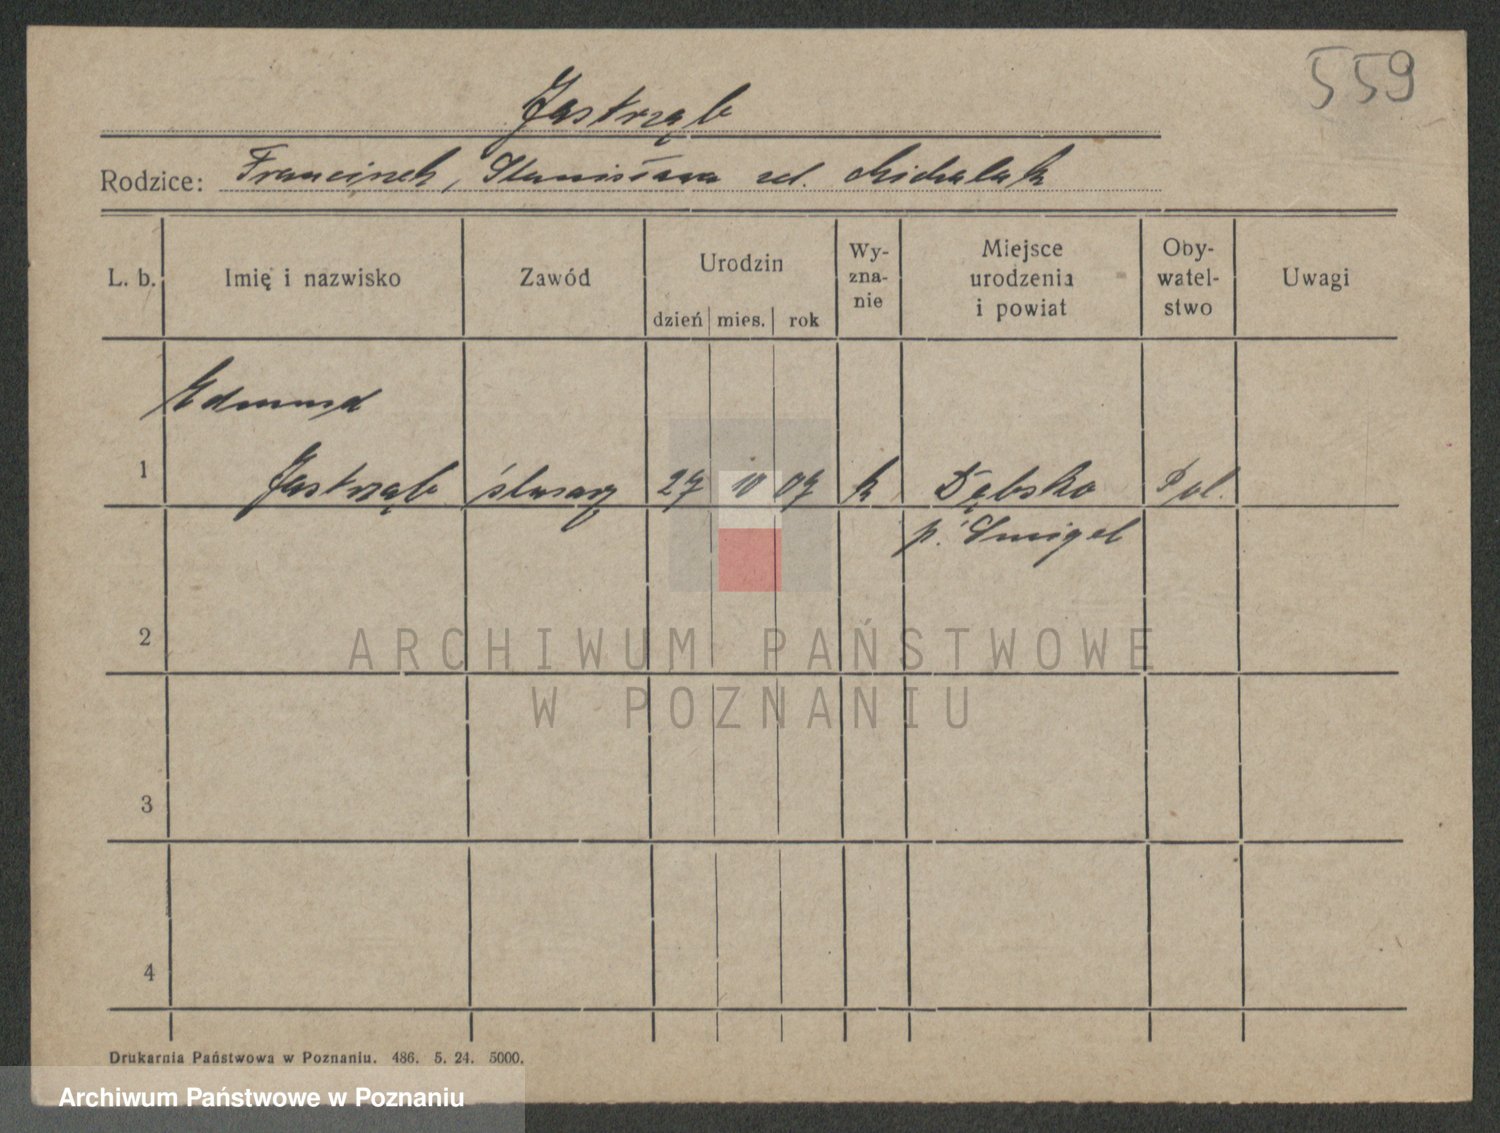 559
Jastrząb
Rodzice: Franciszek, Stanisława zd. Michalak
L. b. Imię i nazwisko Zawód Urodzin dzień mies. rok Wy-znanie Miejsce urodzenia i powiat Oby-watel-stwo Uwagi
Edmund
1 Jastrząb ślusarz 27 10 07 k Dębsko Pol.
p. Śmigel
2
ARCHIWUM PAŃSTWOWE
W POZNANIU
3
4
Drukarnia Państwowa w Poznaniu. 486. 5. 24. 5000.
Archiwum Państwowe w Poznaniu